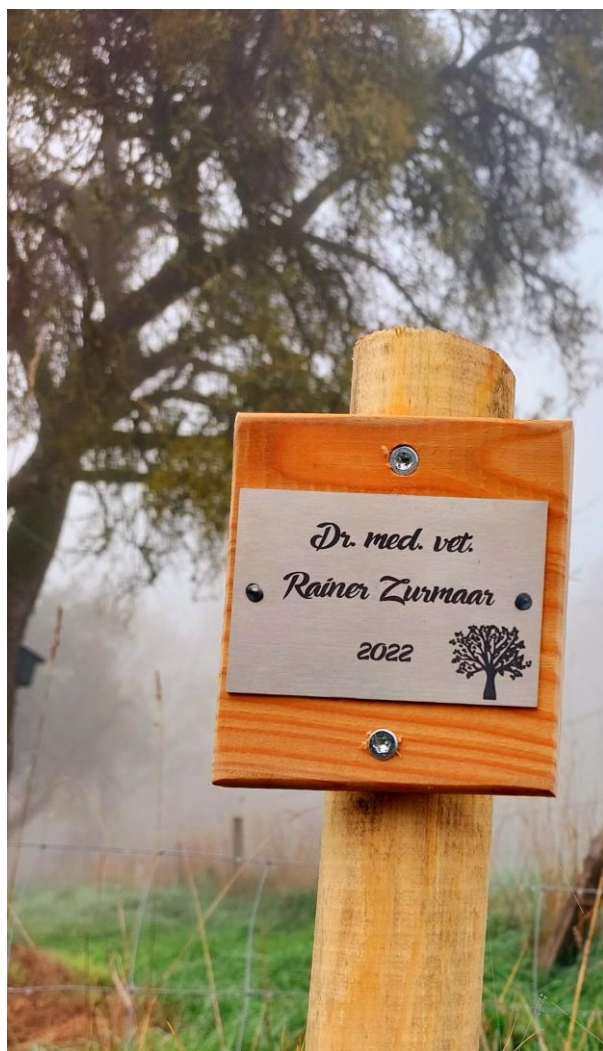 Dr. med. vet.
Rainer Zurmaar
2022